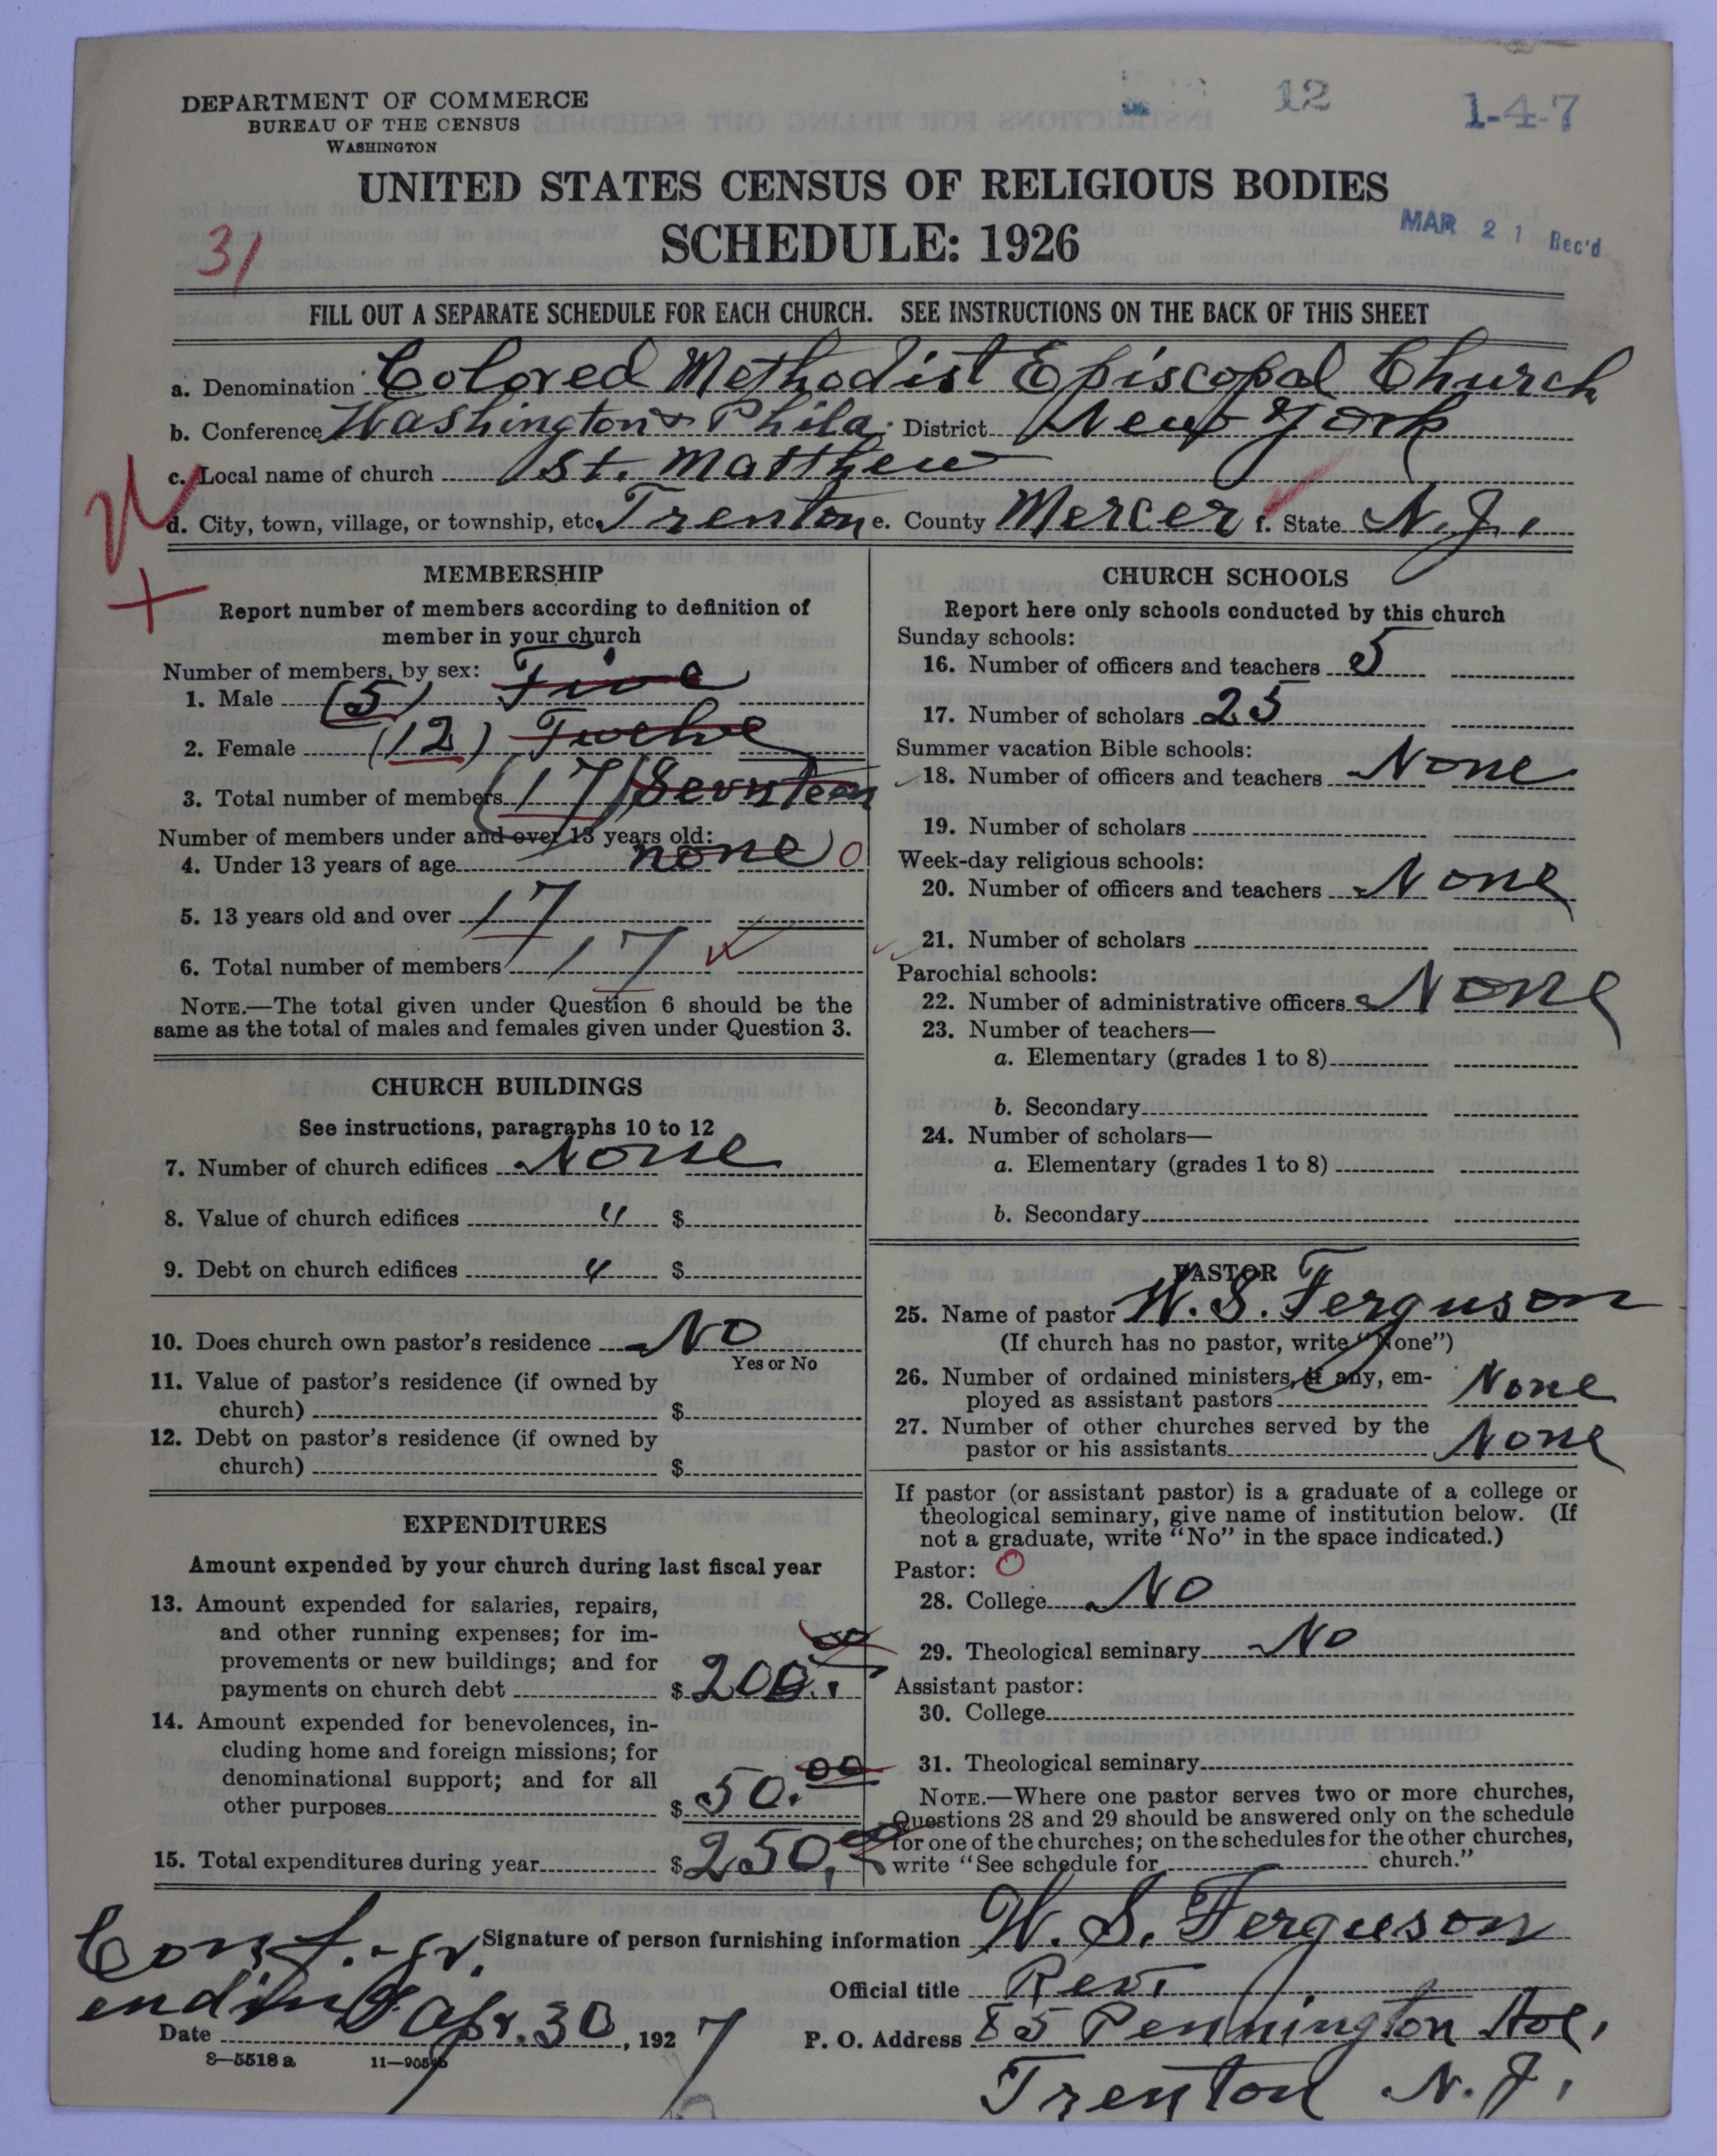 DEPARTMENT OF COMMERCE
BUREAU OF THE CENSUS
WASHINGTON
12
1-4-7
UNITED STATES CENSUS OF RELIGIOUS BODIES
SCHEDULE: 1926
MAR 21 Rec'd
31
FILL OUT A SEPARATE SCHEDULE FOR EACH CHURCH. SEE INSTRUCTIONS ON THE BACK OF THIS SHEET
a. Denomination Colored Methodist Episcopal Church
b. Conference Washington & Phila. District New York
c. Local name of church St. Matthew
d. City, town, village, or township, etc. Trenton e. County Mercer f. State N.J.
MEMBERSHIP
Report number of members according to definition of
member in your church
Number of members, by sex:
1. Male (5) Five
2. Female (12) Twelve
3. Total number of members (17) Seventeen
Number of members under and over 13 years old:
4. Under 13 years of age none 0
5. 13 years old and over 17
6. Total number of members 17
NOTE.—The total given under Question 6 should be the
same as the total of males and females given under Question 3.
CHURCH BUILDINGS
See instructions, paragraphs 10 to 12
7. Number of church edifices None
8. Value of church edifices " $
9. Debt on church edifices " $
10. Does church own pastor's residence No
Yes or No
11. Value of pastor's residence (if owned by
church) $
12. Debt on pastor's residence (if owned by
church) $
EXPENDITURES
Amount expended by your church during last fiscal year
13. Amount expended for salaries, repairs,
and other running expenses; for im-
provements or new buildings; and for
payments on church debt $ 200.00
14. Amount expended for benevolences, in-
cluding home and foreign missions; for
denominational support; and for all
other purposes $ 50.00
15. Total expenditures during year $ 250.00
CHURCH SCHOOLS
Report here only schools conducted by this church
Sunday schools:
16. Number of officers and teachers 5
17. Number of scholars 25
Summer vacation Bible schools:
18. Number of officers and teachers None
19. Number of scholars
Week-day religious schools:
20. Number of officers and teachers None
21. Number of scholars
Parochial schools:
22. Number of administrative officers None
23. Number of teachers—
a. Elementary (grades 1 to 8)
b. Secondary
24. Number of scholars—
a. Elementary (grades 1 to 8)
b. Secondary
PASTOR
25. Name of pastor W. S. Ferguson
(If church has no pastor, write "None")
26. Number of ordained ministers, if any, em-
ployed as assistant pastors None
27. Number of other churches served by the
pastor or his assistants None
If pastor (or assistant pastor) is a graduate of a college or
theological seminary, give name of institution below. (If
not a graduate, write "No" in the space indicated.)
Pastor: 0
28. College No
29. Theological seminary No
Assistant pastor:
30. College
31. Theological seminary
NOTE.—Where one pastor serves two or more churches,
Questions 28 and 29 should be answered only on the schedule
for one of the churches; on the schedules for the other churches,
write "See schedule for church."
Conf.-yr.
ending
Signature of person furnishing information W. S. Ferguson
Official title Rev.
Date Apr. 30, 1927
P. O. Address 85 Pennington Ave,
Trenton N. J.
8—5518 a 11—9054